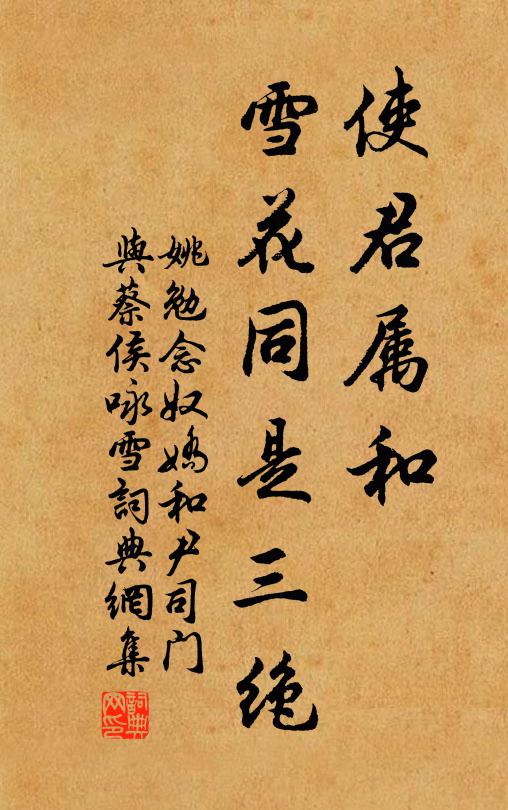 使君属和
雪花同是三绝
姚勉念奴娇和尹司门
與蔡侯咏雪詞典網集
詞典
网印